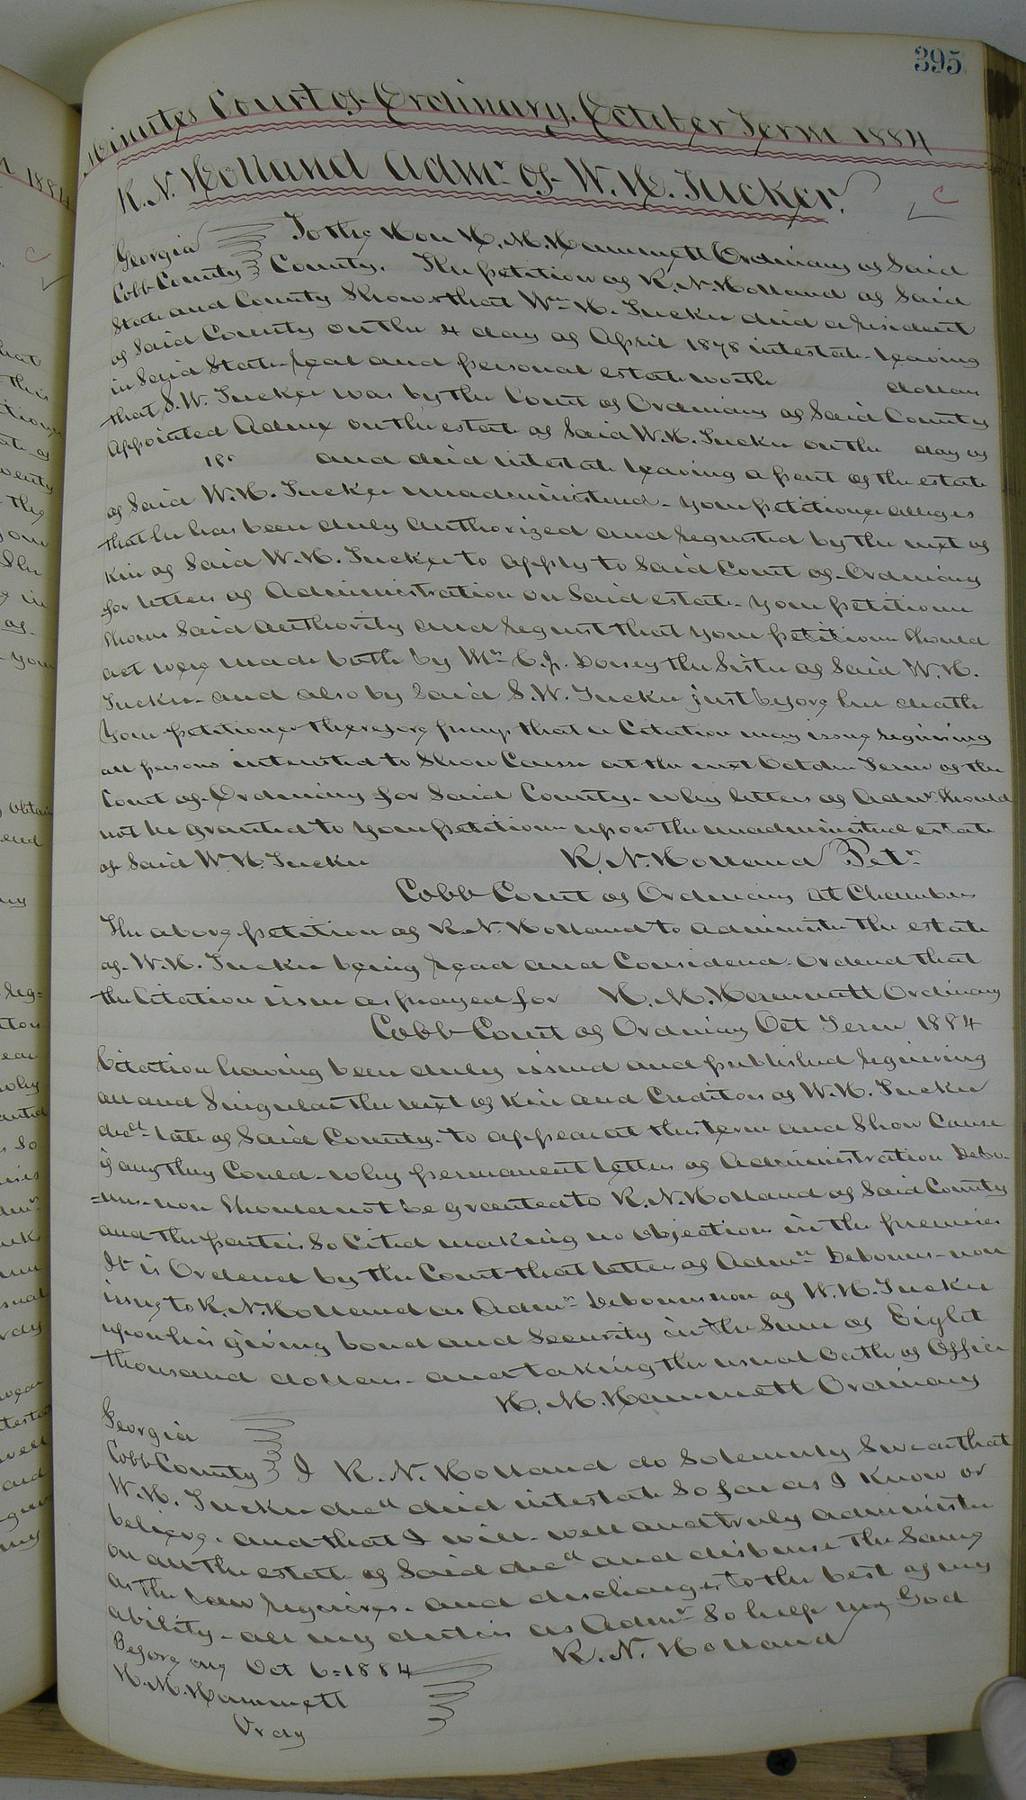 395
Minutes Court of Ordinary, October Term 1884
R. N. Holland Admr. of W. H. Tucker.
Georgia To the Hon H. M. Hammett Ordinary of Said
Cobb County County. The petition of R. N. Holland of Said
State and County Shows that Wm H. Tucker died a resident
of Said County on the 4 day of April 1878 intestate leaving
in Said State real and personal estate worth dollars
that S. W. Tucker was by the Court of Ordinary of Said County
Appointed Admx on the estate of Said W. H. Tucker on the day of
18 and died intestate leaving a part of the estate
of Said W. H. Tucker unadministered. your petitioner alleges
that he has been duly authorized and requested by the next of
kin of Said W. H. Tucker to apply to Said Court of Ordinary
for letters of Administration on Said estate. your petitioner
shows Said authority and request that your petitioner should
act were made both by Mrs Dorsey the Sister of Said W. H.
Tucker and also by Said S. W. Tucker just before her death
Your petitioner therefore prays that a Citation may issue requiring
all persons interested to Show Cause at the next October Term of the
Court of Ordinary for Said County. why letters of Admr. Should
not be granted to your petitioner upon the unadministered estate
of Said W. H. Tucker R. N. Holland Petr.
Cobb Court of Ordinary at Chambers
The above petition of R. N. Holland to administer the estate
of W. H. Tucker being read and Considered. Ordered that
the Citation issue as prayed for H. M. Hammett Ordinary
Cobb Court of Ordinary Oct Term 1884
Citation having been duly issued and published requiring
all and Singular the next of Kin and Creditors of W. H. Tucker
decd. late of Said County. to appear at this term and Show Cause
if any they Could. why permanent letters of Administration Debo-
=nis-non Should not be granted to R. N. Holland of Said County
and the parties So Cited making no objections in the premises
It is Ordered by the Court that letters of Admn Debonis-non
issue to R. N. Holland as Admr. Debonis non of W. H. Tucker
upon his giving bond and Security in the Sum of Eight
thousand dollars. and taking the usual Oath of Office
H. M. Hammett Ordinary
Georgia
Cobb County I R. N. Holland do Solemnly Swear that
W. H. Tucker decd died intestate So far as I Know or
believe. and that I will well and truly administer
on all the estate of Said decd and disburse the Same
as the law requires. and discharge to the best of my
ability. all my duties as Admr. So help me God
Before me Oct 6=1884 R. N. Holland
H. M. Hammett
Ordy